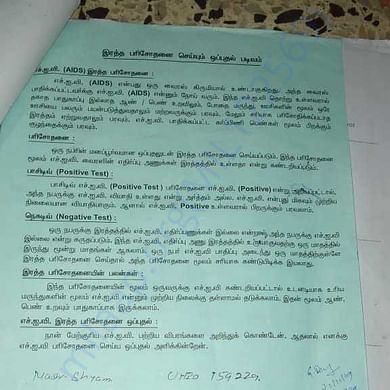 இரத்த பரிசோதனை செய்யும் ஒப்புதல் படிவம்
எச்.ஐ.வி. (AIDS) இரத்த பரிசோதனை :
எச்.ஐ.வி. (AIDS) என்பது ஒரு வைரஸ் கிருமியால் உண்டாகிறது. அந்த வைரஸ்
பாதிக்கப்பட்டவர்க்கு எச்.ஐ.வி. (AIDS) என்னும் நோய் வரும். இந்த எச்.ஐ.வி தொற்று உள்ளவரால்
தகாத பாதுகாப்பு இல்லாத ஆண் / பெண் உறவிலும், போதை மருந்து, ஊசிகளின் மூலம்
ஊசியை பலரும் பயன்படுத்துவதாலும் மற்றவருக்கும் பரவும். மேலும் சரியாக பரிசோதிக்கப்படாத
இரத்தம் ஏற்றுவதாலும் பரவும். எச்.ஐ.வி. பாதிக்கப்பட்ட கர்ப்பிணி பெண்கள் மூலம் பிறக்கும்
குழந்தைக்கும் பரவும்.
பரிசோதனை :
ஒரு நபரின் மனப்பூர்வமான ஒப்புதலுடன் இரத்த பரிசோதனை செய்யப்படும். இந்த பரிசோதனை
மூலம் எச்.ஐ.வி. வைரஸின் எதிர்ப்பு அணுக்கள் இரத்தத்தில் உள்ளதா என்று கண்டறியப்படும்.
பாசிடிவ் (Positive Test) :
பாசிடிவ் எச்.ஐ.வி. (Positive Test) பரிசோதனை எச்.ஐ.வி. (Positive) என்று
அந்த நபருக்கு எச்.ஐ.வி. வியாதி உள்ளது என்று அர்த்தம் அல்ல. எச்.ஐ.வி. என்பது மிகவும் முற்றிய
நிலையான வியாதியாகும். ஆனால் எச்.ஐ.வி. Positive உள்ளவரால் பிறருக்கும் பரவலாம்.
நெகடிவ் (Negative Test) :
ஒரு நபருக்கு இரத்தத்தில் எச்.ஐ.வி. எதிர்ப்பணுக்கள் இல்லை என்றால் அந்த நபருக்கு எச்.ஐ.வி
இல்லை என்று கருதப்படும். இந்த எச்.ஐ.வி. எதிர்ப்பு அணு இரத்தத்தில் உருவாகுவதற்கு ஒரு மாதத்தில்
இருந்து மூன்று மாதங்கள் ஆகலாம். ஒரு நபர் எச்.ஐ.வி பாதிப்பு அடைந்து ஒரு மாதத்திற்குள்ளே
இரத்த பரிசோதனை செய்தால் அந்த பரிசோதனை மூலம் சரியாக கண்டுபிடிக்க இயலாது.
இரத்த பரிசோதனையின் பலன்கள் :
இந்த பரிசோதனையின் மூலம் ஒருவருக்கு எச்.ஐ.வி கண்டறியப்பட்டால் உடனடியாக உரிய
மருந்துகளின் மூலம் எச்.ஐ.வி என்னும் முற்றிய நிலைக்கு தள்ளாமல் தடுக்கலாம். இதன் மூலம் ஆண்,
பெண் உறவும் பாதுகாப்பாக இருக்கலாம்.
எச்.ஐ.வி. இரத்த பரிசோதனை ஒப்புதல் :
நான் மேற்கூறிய எச்.ஐ.வி. பற்றிய விபரங்களை அறிந்துக் கொண்டேன். ஆதலால் எனக்கு
எச்.ஐ.வி பரிசோதனை செய்ய ஒப்புதல் அளிக்கின்றேன்.